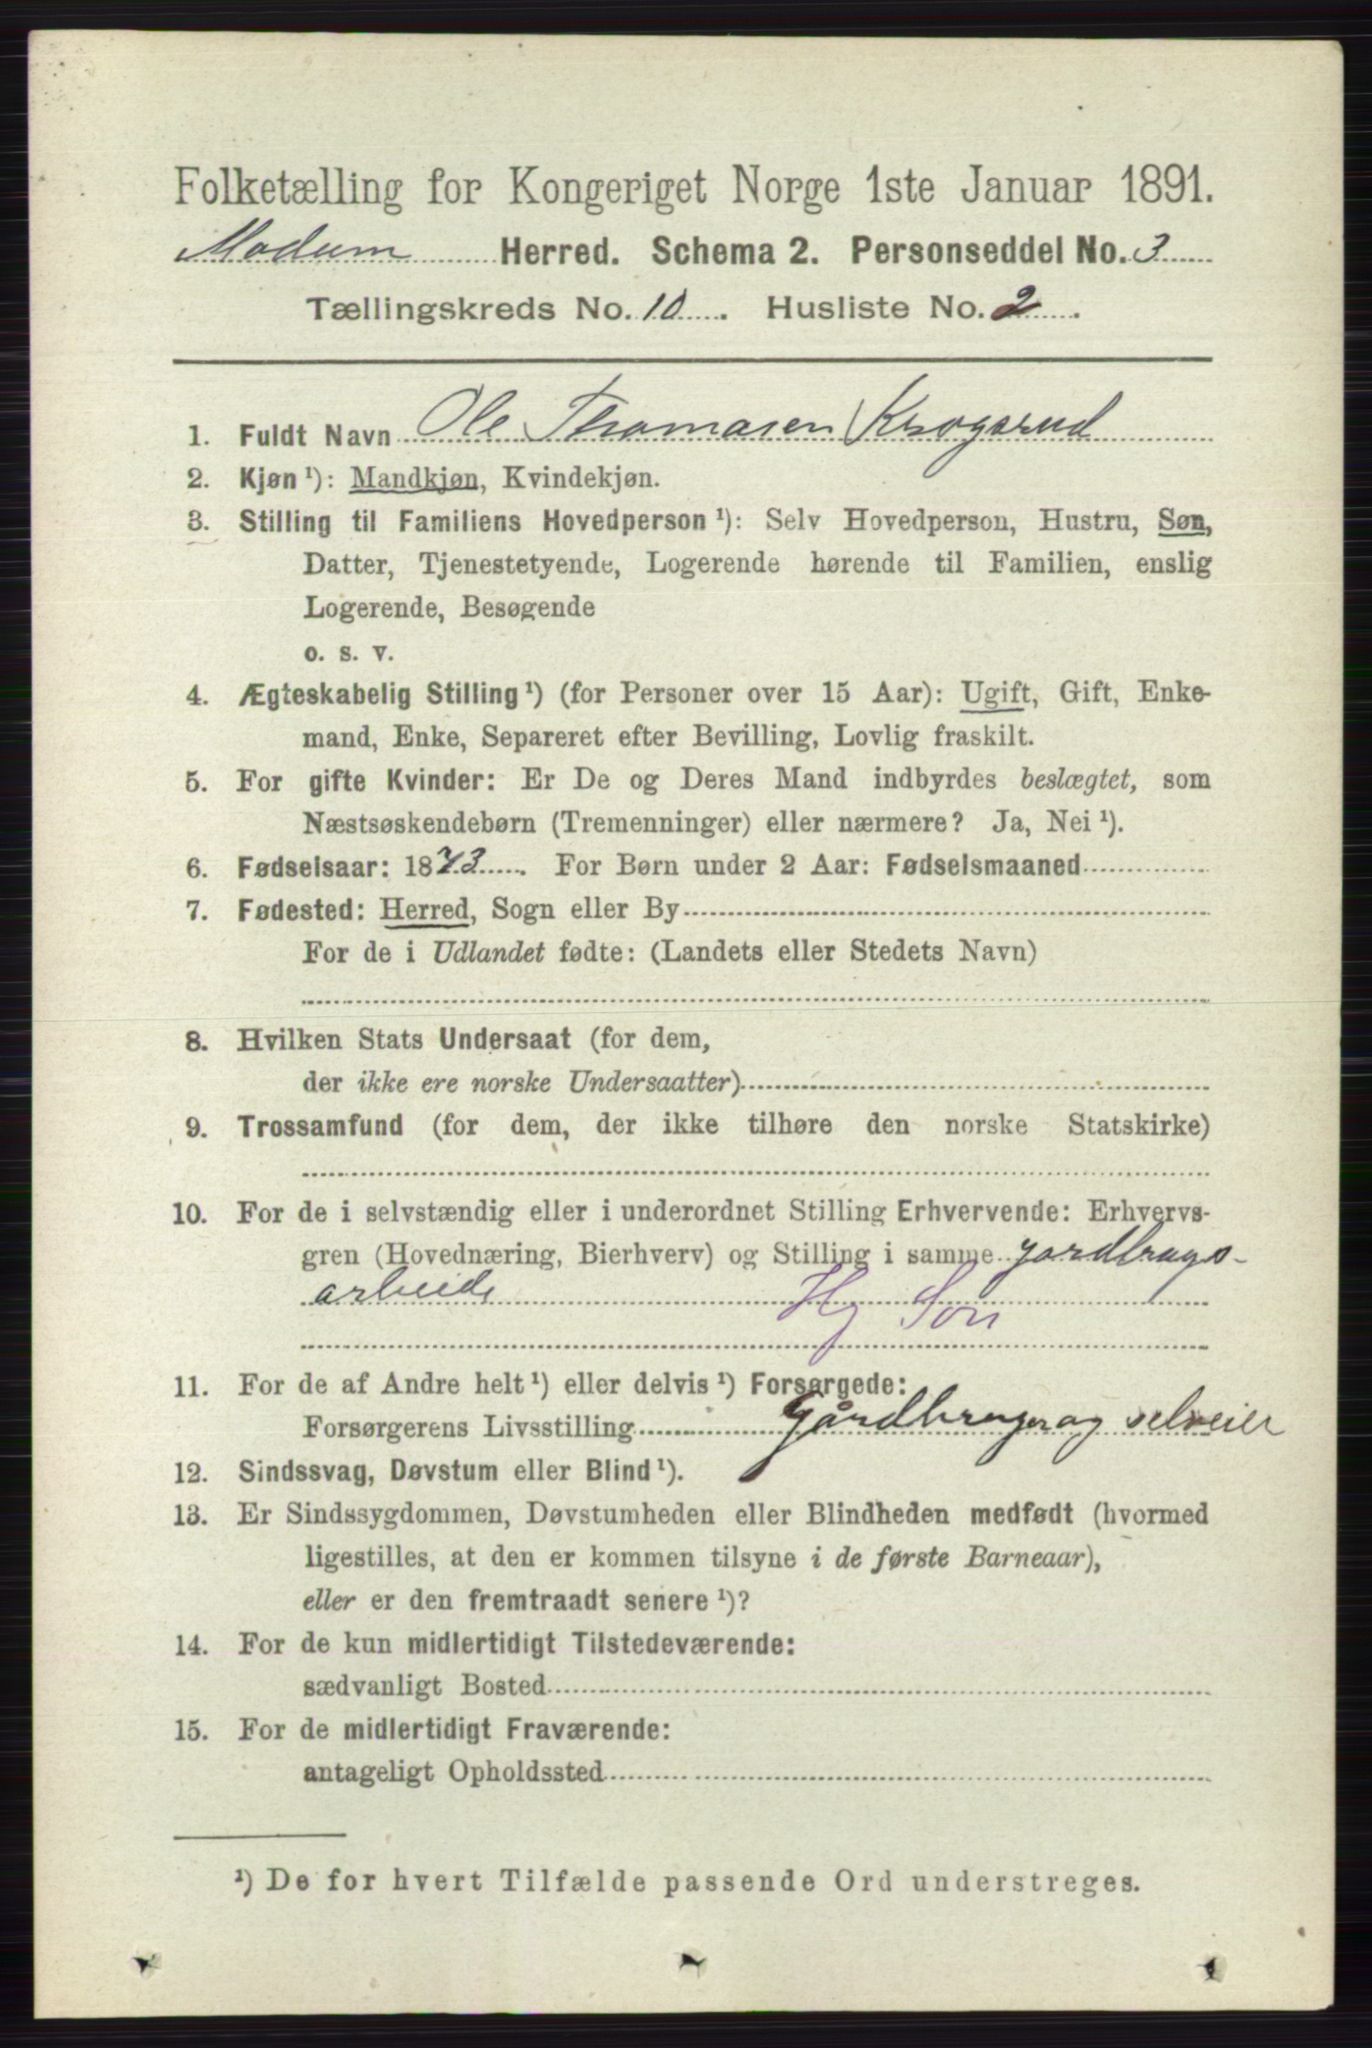 Folketælling for Kongeriget Norge 1ste Januar 1891.
Modum Herred. Schema 2. Personseddel No. 3
Tællingskreds No. 10. Husliste No. 2.
1. Fuldt Navn Ole Thomasen Krogsrud
2. Kjøn ¹): Mandkjøn, Kvindekjøn.
3. Stilling til Familiens Hovedperson ¹): Selv Hovedperson, Hustru, Søn,
Datter, Tjenestetyende, Logerende hørende til Familien, enslig
Logerende, Besøgende
o. s. v.
4. Ægteskabelig Stilling ¹) (for Personer over 15 Aar): Ugift, Gift, Enke-
mand, Enke, Separeret efter Bevilling, Lovlig fraskilt.
5. For gifte Kvinder: Er De og Deres Mand indbyrdes beslægtet, som
Næstsøskendebørn (Tremenninger) eller nærmere? Ja, Nei ¹).
6. Fødselsaar: 1873. For Børn under 2 Aar: Fødselsmaaned
7. Fødested: Herred, Sogn eller By
For de i Udlandet fødte: (Landets eller Stedets Navn)
8. Hvilken Stats Undersaat (for dem,
der ikke ere norske Undersaatter)
9. Trossamfund (for dem, der ikke tilhøre den norske Statskirke)
10. For de i selvstændig eller i underordnet Stilling Erhvervende: Erhvervs-
gren (Hovednæring, Bierhverv) og Stilling i samme jordbrugs-
arbeide
Hg Søn
11. For de af Andre helt ¹) eller delvis ¹) Forsørgede:
Forsørgerens Livsstilling Gårdbruger og selveier
12. Sindssvag, Døvstum eller Blind ¹).
13. Er Sindssygdommen, Døvstumheden eller Blindheden medfødt (hvormed
ligestilles, at den er kommen tilsyne i de første Barneaar),
eller er den fremtraadt senere ¹)?
14. For de kun midlertidigt Tilstedeværende:
sædvanligt Bosted
15. For de midlertidigt Fraværende:
antageligt Opholdssted
¹) De for hvert Tilfælde passende Ord understreges.